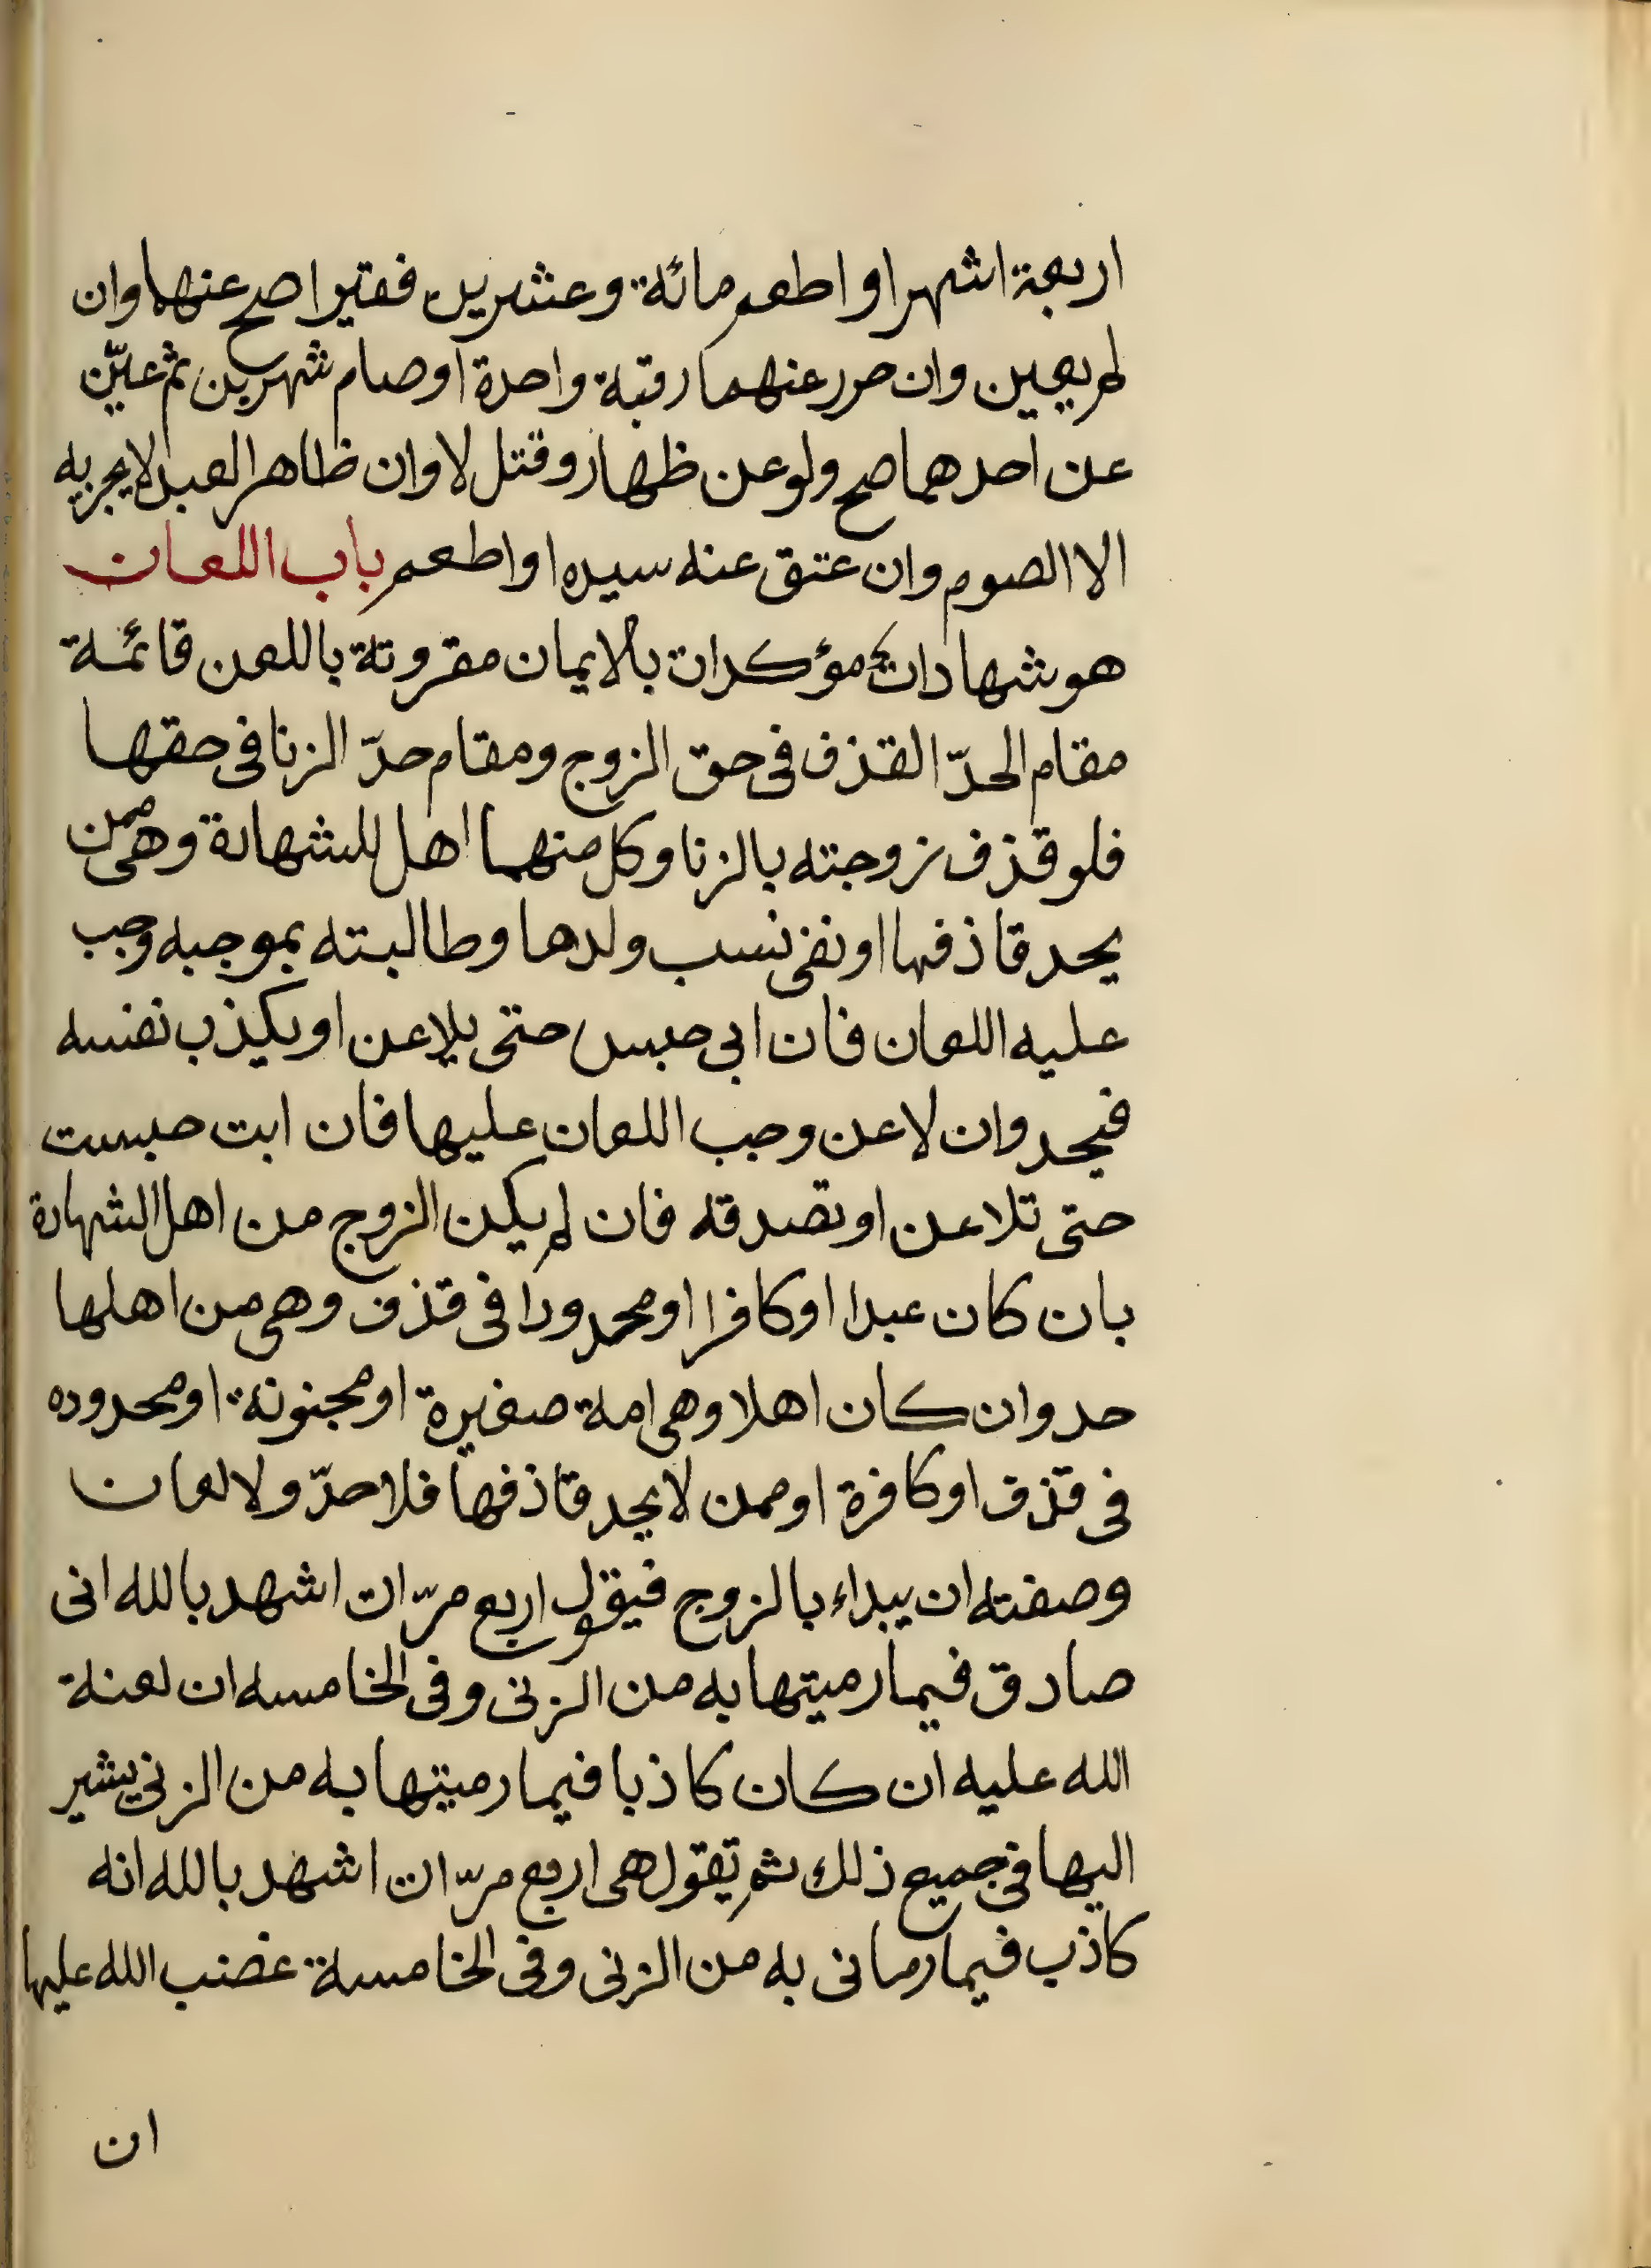 اربعة اشهر او اطعم مائة وعشرين فقيرا صح عنهما وان
لم يعين وان حرر عنهما رقبة واحدة او صام شهرين ثم عيّن
عن احدهما صح ولو عن ظهار وقتل لا وان ظاهر العبد لا يجزيه
الا الصوم وان عتق عنه سيده او اطعم باب اللعان
هو شهادات مؤكدات بالايمان مقرونة باللعن قائمة
مقام الحدّ القذف فى حق الزوج ومقام حدّ الزنا فى حقها
فلو قذف زوجته بالزنا وكل منهما اهل للشهادة وهى ممن
يحد قاذفها او نفى نسب ولدها وطالبته بموجبه وجب
عليه اللعان فان ابى حبس حتى يلاعن او يكذب نفسه
فيحد وان لاعن وجب اللعان عليها فان ابت حبست
حتى تلاعن او تصدقه فان لم يكن الزوج من اهل الشهادة
بان كان عبدا او كافرا او محدودا فى قذف وهى من اهلها
حد وان كان اهلا وهى امة صغيرة او مجنونة او محدوده
فى قذف او كافرة او ممن لا يحد قاذفها فلا حدّ ولا لعان
وصفته ان يبداء بالزوج فيقول اربع مرّات اشهد بالله انى
صادق فيما رميتها به من الزنى وفى الخامسه ان لعنة
الله عليه ان كان كاذبا فيما رميتها به من الزنى يشير
اليها فى جميع ذلك ثم تقول هى اربع مرّات اشهد بالله انه
كاذب فيما رمانى به من الزنى وفى الخامسة غضب الله عليها
ان